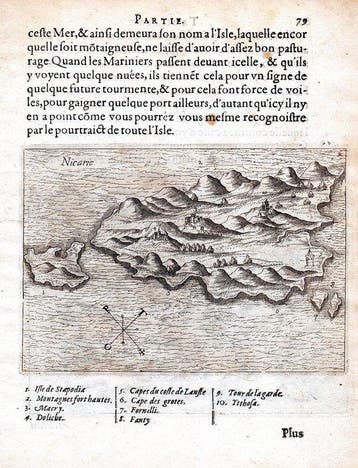 PARTIE. 79
ceste Mer,& ainsi demeura son nom a l'Isle, laquelle encor
quelle soit mõtaigneuse, ne laisse d'auoir d'assez bon pastu-
rage. Quand les Mariniers passent deuant icelle, & qu'ils
y voyent quelque nuées, ils tiennẽt cela pour vn signe de
quelque future tourmente, & pour cela font force de voi-
les, pour gaigner quelque port ailleurs, d'autant qu'icy il ny
en a point cõme vous pourrez vous mesme recognoistre
par le pourtraict de toute l'Isle.
Nicarie
P
T
O
1. Isle de Stapodia
2. Montagnes fort hautes.
3. Macry.
4. Doliche.
5. Capes du coste de
6. Cape des grotes.
7. Fornelli.
8. Fanty
9. Tour de la garde.
10.
Plus